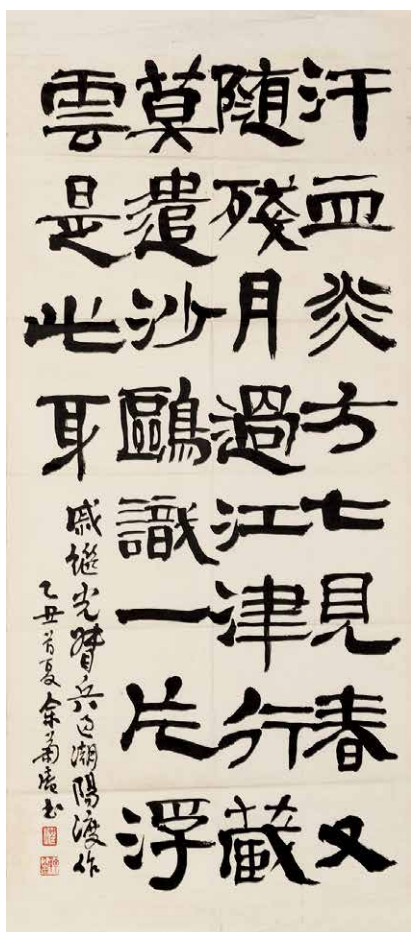 汗血炎方七見春又
随殘月過江津行藏
莫遣沙鷗識一片浮
雲是此身
戚繼光督兵過潮陽渡作
乙丑首夏余菊庵书